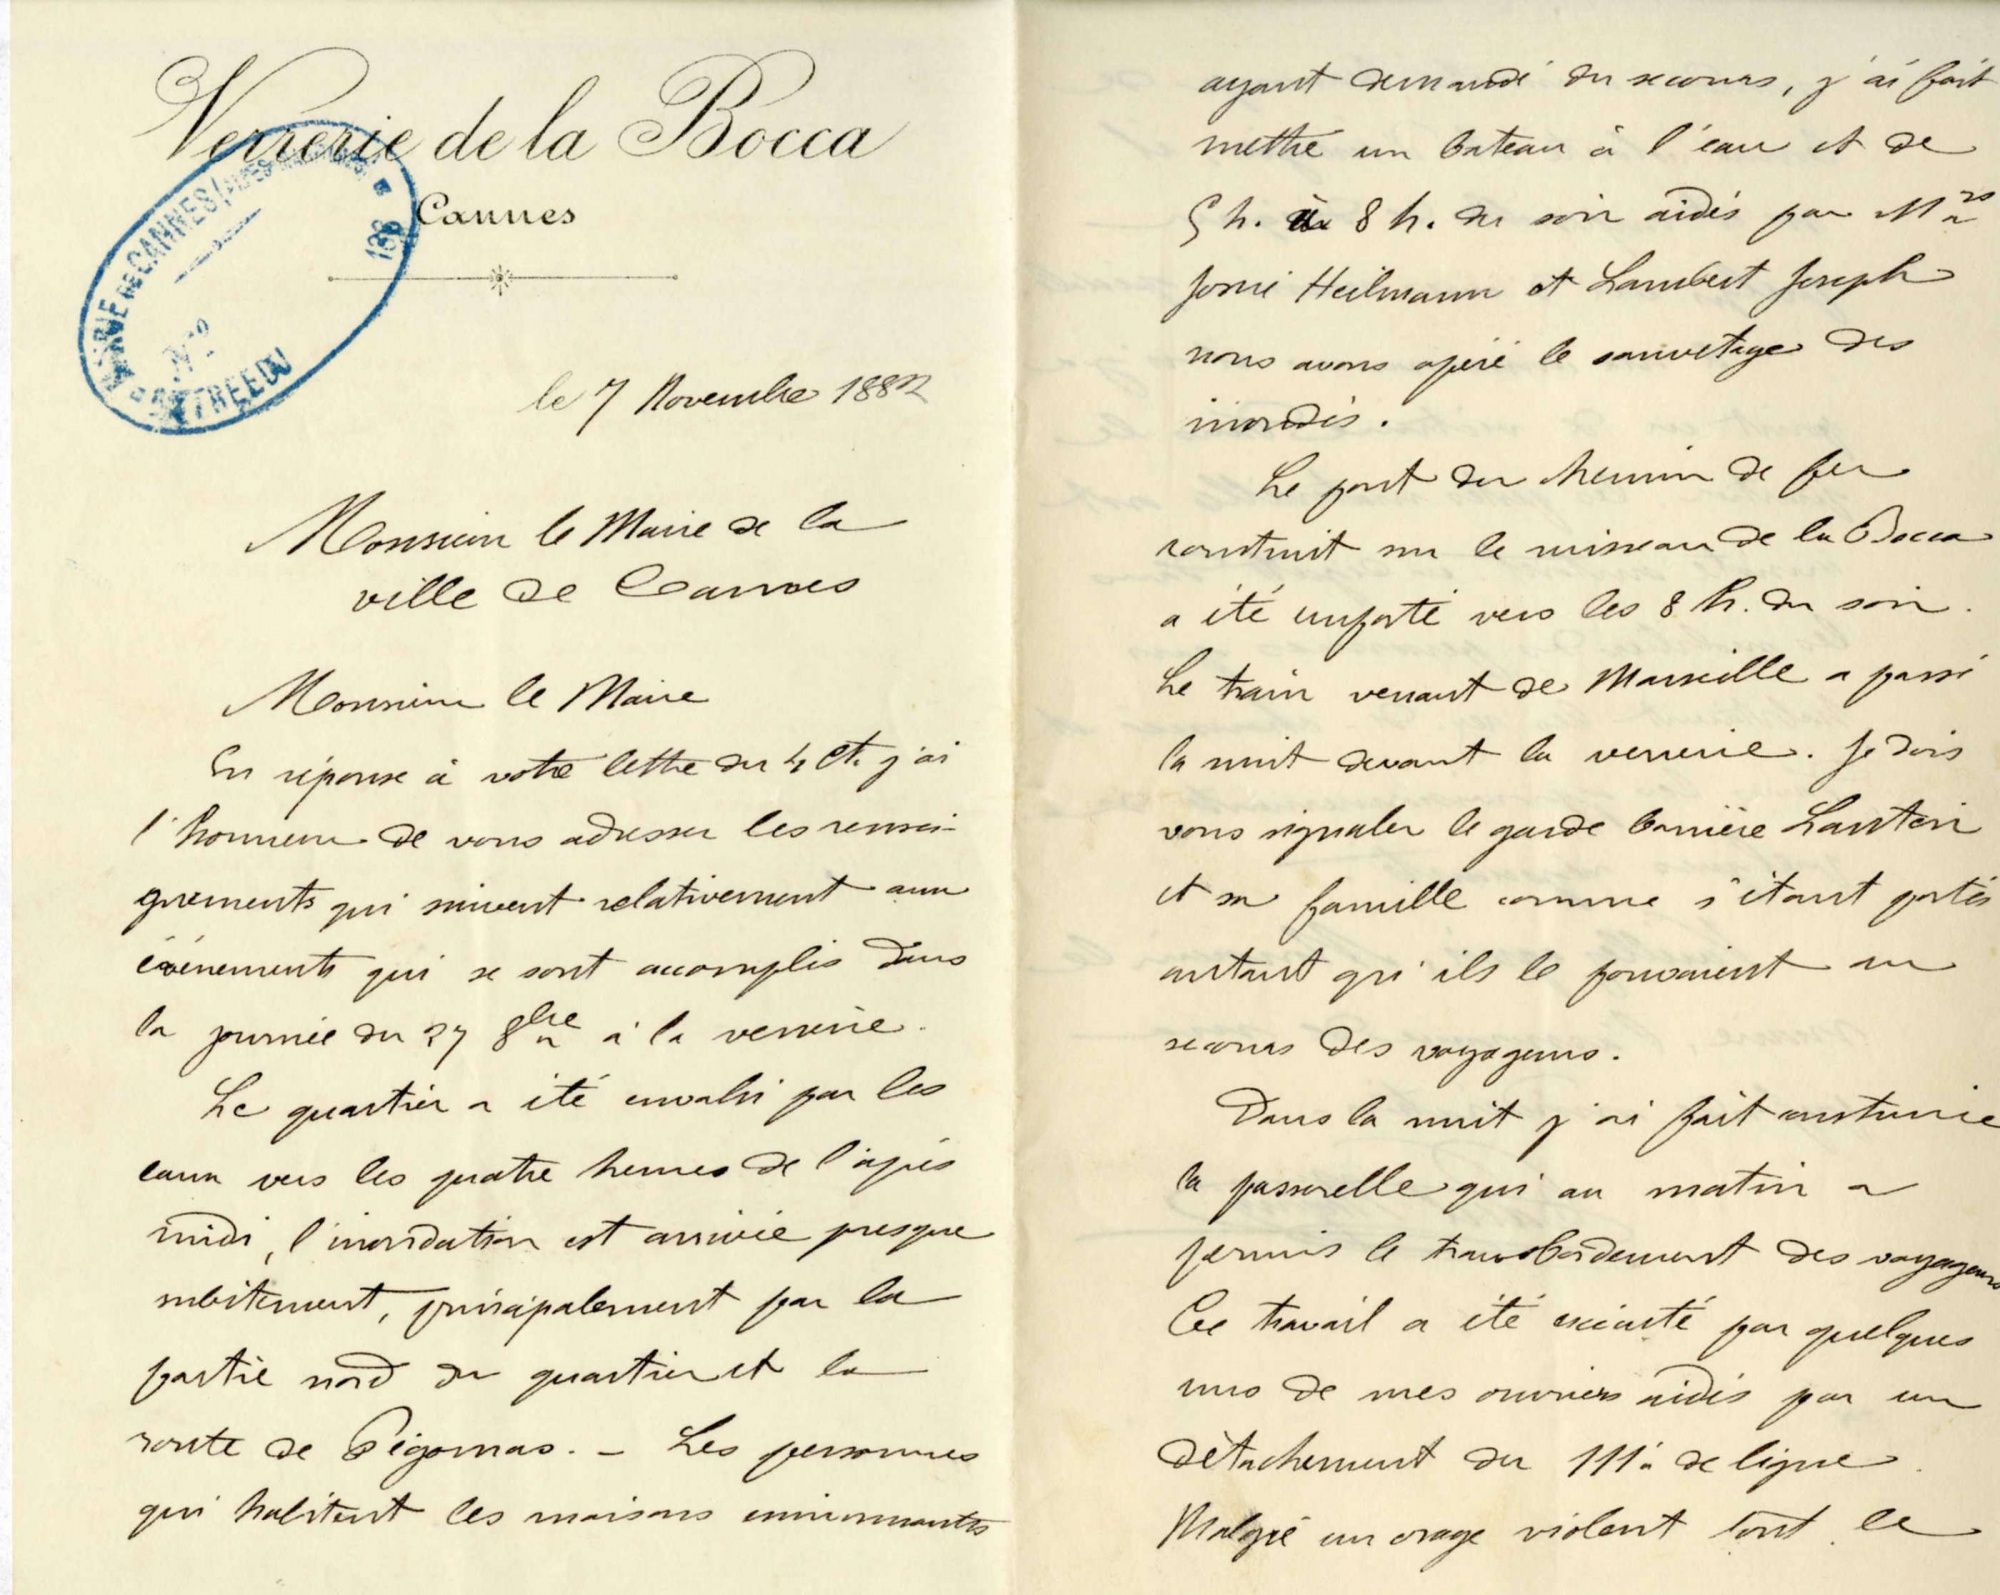 Verrerie de la Bocca
Cannes
MAIRIE DE CANNES
188
N°
ENTRÉE DU
le 7 Novembre 1882
Monsieur le Maire de la
ville de Cannes
Monsieur le Maire
En réponse à votre lettre du 4 ct. j'ai
l'honneur de vous adresser les rensei-
gnements qui suivent relativement aux
événements qui se sont accomplis dans
la journée du 27 8bre à la verrerie.
Le quartier a été envahi par les
eaux vers les quatre heures de l'après
midi, l'inondation est arrivée presque
subitement, principalement par la
partie nord du quartier et la
route de Pégomas. - Les personnes
qui habitent les maisons environnantes
ayant demandé du secours, j'ai fait
mettre un bateau à l'eau et de
5 h. à 8 h. du soir aidés par Mrs
Heilmann et Lambert Joseph
nous avons opéré le sauvetage des
inondés.
Le pont du chemin de fer
construit sur le ruisseau de la Bocca
a été emporté vers les 8 h. du soir.
Le train venant de Marseille a passé
la nuit devant la verrerie. Je dois
vous signaler le garde barrière
et sa famille comme s'étant portés
autant qu'ils le pouvaient au
secours des voyageurs.
Dans la nuit j'ai fait construire
la passerelle qui au matin a
permis le transbordement des voyageurs
Ce travail a été exécuté par quelques
uns de mes ouvriers aidés par un
détachement du 111e de ligne.
Malgré un orage violent tout le